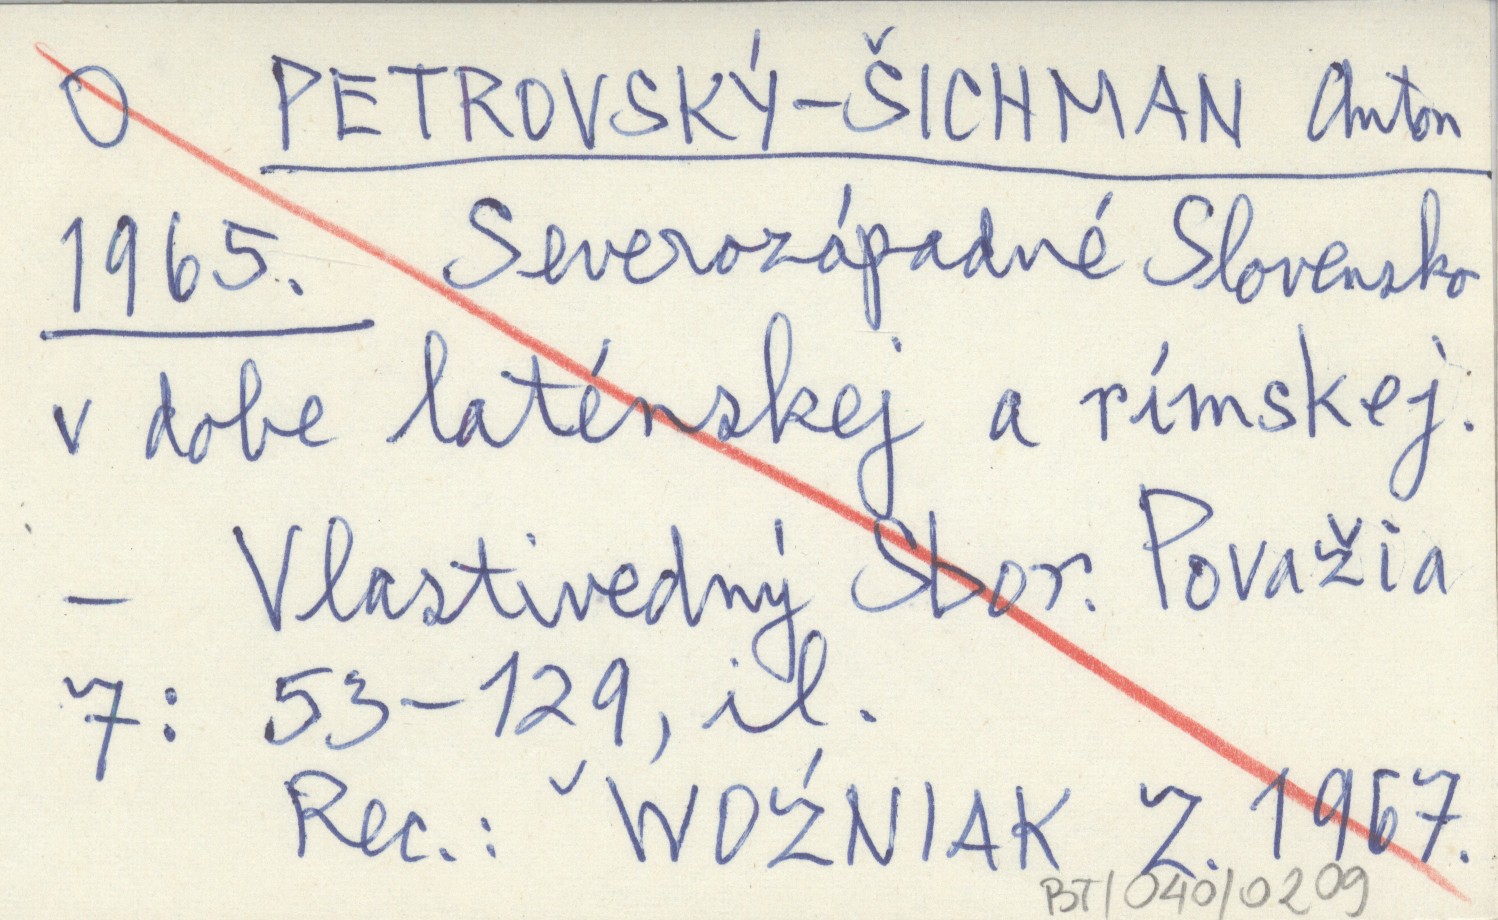 O PETROVSKÝ-ŠICHMAN Anton
1965. Severozápadné Slovensko
v dobe laténskej a rímskej.
- Vlastivedný Sbor. Považia
7: 53-129, il.
Rec.: ˇWOŹNIAK Z. 1967.
BT/040/0209